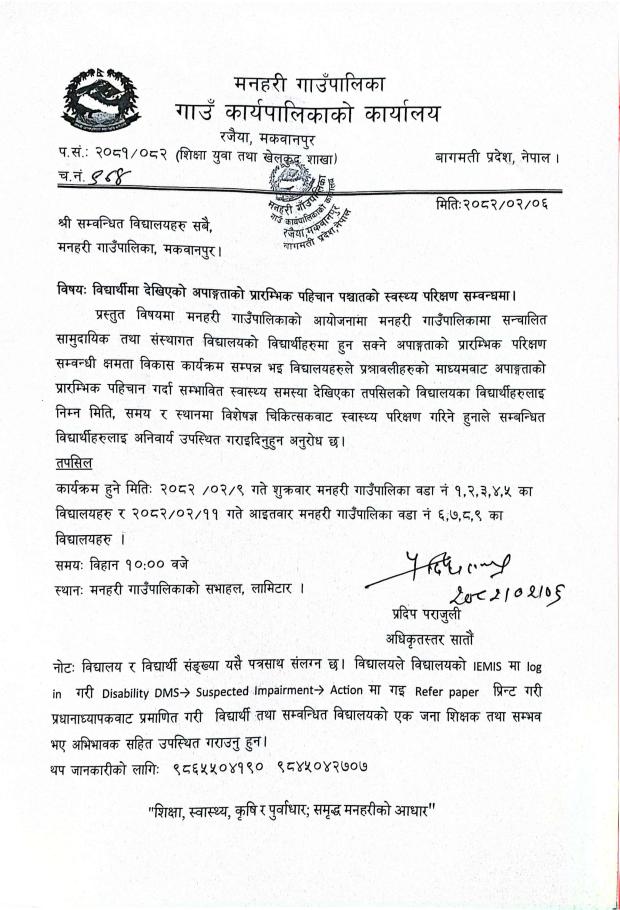 मनहरी गाउँपालिका
गाउँ कार्यपालिकाको कार्यालय
रजैया, मकवानपुर
प.सं.: २०८१/०८२ (शिक्षा युवा तथा खेलुकुद शाखा)
बागमती प्रदेश, नेपाल ।
च.नं.
मनहरी गाउँपालिका
गाउँ कार्यपालिकाको कार्यालय
रजैया, मकवानपुर
बागमती प्रदेश, नेपाल
मिति:२०८२/०२/०६
श्री सम्वन्धित विद्यालयहरु सबै,
मनहरी गाउँपालिका, मकवानपुर।
विषय: विद्यार्थीमा देखिएको अपाङ्गताको प्रारम्भिक पहिचान पश्चातको स्वस्थ्य परिक्षण सम्वन्धमा।
प्रस्तुत विषयमा मनहरी गाउँपालिकाको आयोजनामा मनहरी गाउँपालिकामा सन्चालित
सामुदायिक तथा संस्थागत विद्यालयको विद्यार्थीहरुमा हुन सक्ने अपाङ्गताको प्रारम्भिक परिक्षण
सम्वन्धी क्षमता विकास कार्यक्रम सम्पन्न भइ विद्यालयहरुले प्रश्नावलीहरुको माध्यमवाट अपाङ्गताको
प्रारम्भिक पहिचान गर्दा सम्भावित स्वास्थ्य समस्या देखिएका तपसिलको विद्यालयका विद्यार्थीहरुलाइ
निम्न मिति, समय र स्थानमा विशेषज्ञ चिकित्सकवाट स्वास्थ्य परिक्षण गरिने हुनाले सम्बन्धित
विद्यार्थीहरुलाइ अनिवार्य उपस्थित गराइदिनुहुन अनुरोध छ।
तपसिल
कार्यक्रम हुने मिति: २०८२ /०२/९ गते शुक्रवार मनहरी गाउँपालिका वडा नं १,२,३,४,५ का
विद्यालयहरु र २०८२/०२/११ गते आइतवार मनहरी गाउँपालिका वडा नं ६,७,८,९ का
विद्यालयहरु ।
समय: विहान १०:०० वजे
स्थान: मनहरी गाउँपालिकाको सभाहल, लामिटार ।
२०८२/०२/०६
प्रदिप पराजुली
अधिकृतस्तर सातौं
नोट: विद्यालय र विद्यार्थी संङ्ख्या यसै पत्रसाथ संलग्न छ। विद्यालयले विद्यालयको IEMIS मा log
in गरी Disability DMS→ Suspected Impairment→ Action मा गइ Refer paper प्रिन्ट गरी
प्रधानाध्यापकवाट प्रमाणित गरी विद्यार्थी तथा सम्वन्धित विद्यालयको एक जना शिक्षक तथा सम्भव
भए अभिभावक सहित उपस्थित गराउनु हुन।
थप जानकारीको लागि: ९८६५५०४१९० ९८४५०४२७०७
"शिक्षा, स्वास्थ्य, कृषि र पुर्वाधार; समृद्ध मनहरीको आधार"